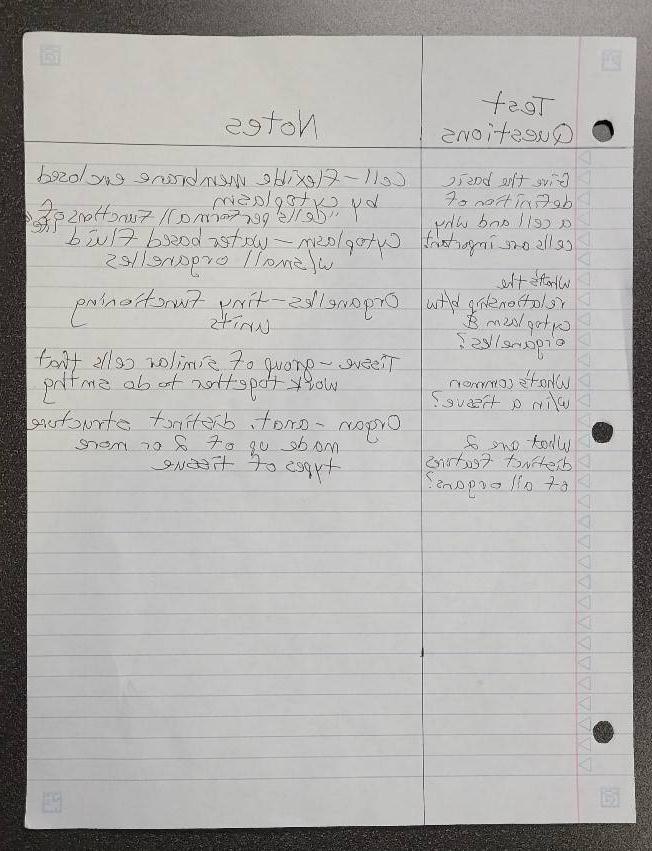 Test Questions
Notes
Give the basic
definition of
a cell and why
cells are important
What's the
relationship b/tw
cytoplasm &
organelles?
What's common
w/in a tissue?
What are 2
distinct features
of all organs?
Cell – Flexible membrane enclosed
by cytoplasm
"cells perform all functions of life
Cytoplasm – water based fluid
w/small organelles
Organelles – tiny functioning
units
Tissue – group of similar cells that
work together to do smthng
Organ – anat. distinct structure
made up of 2 or more
types of tissue